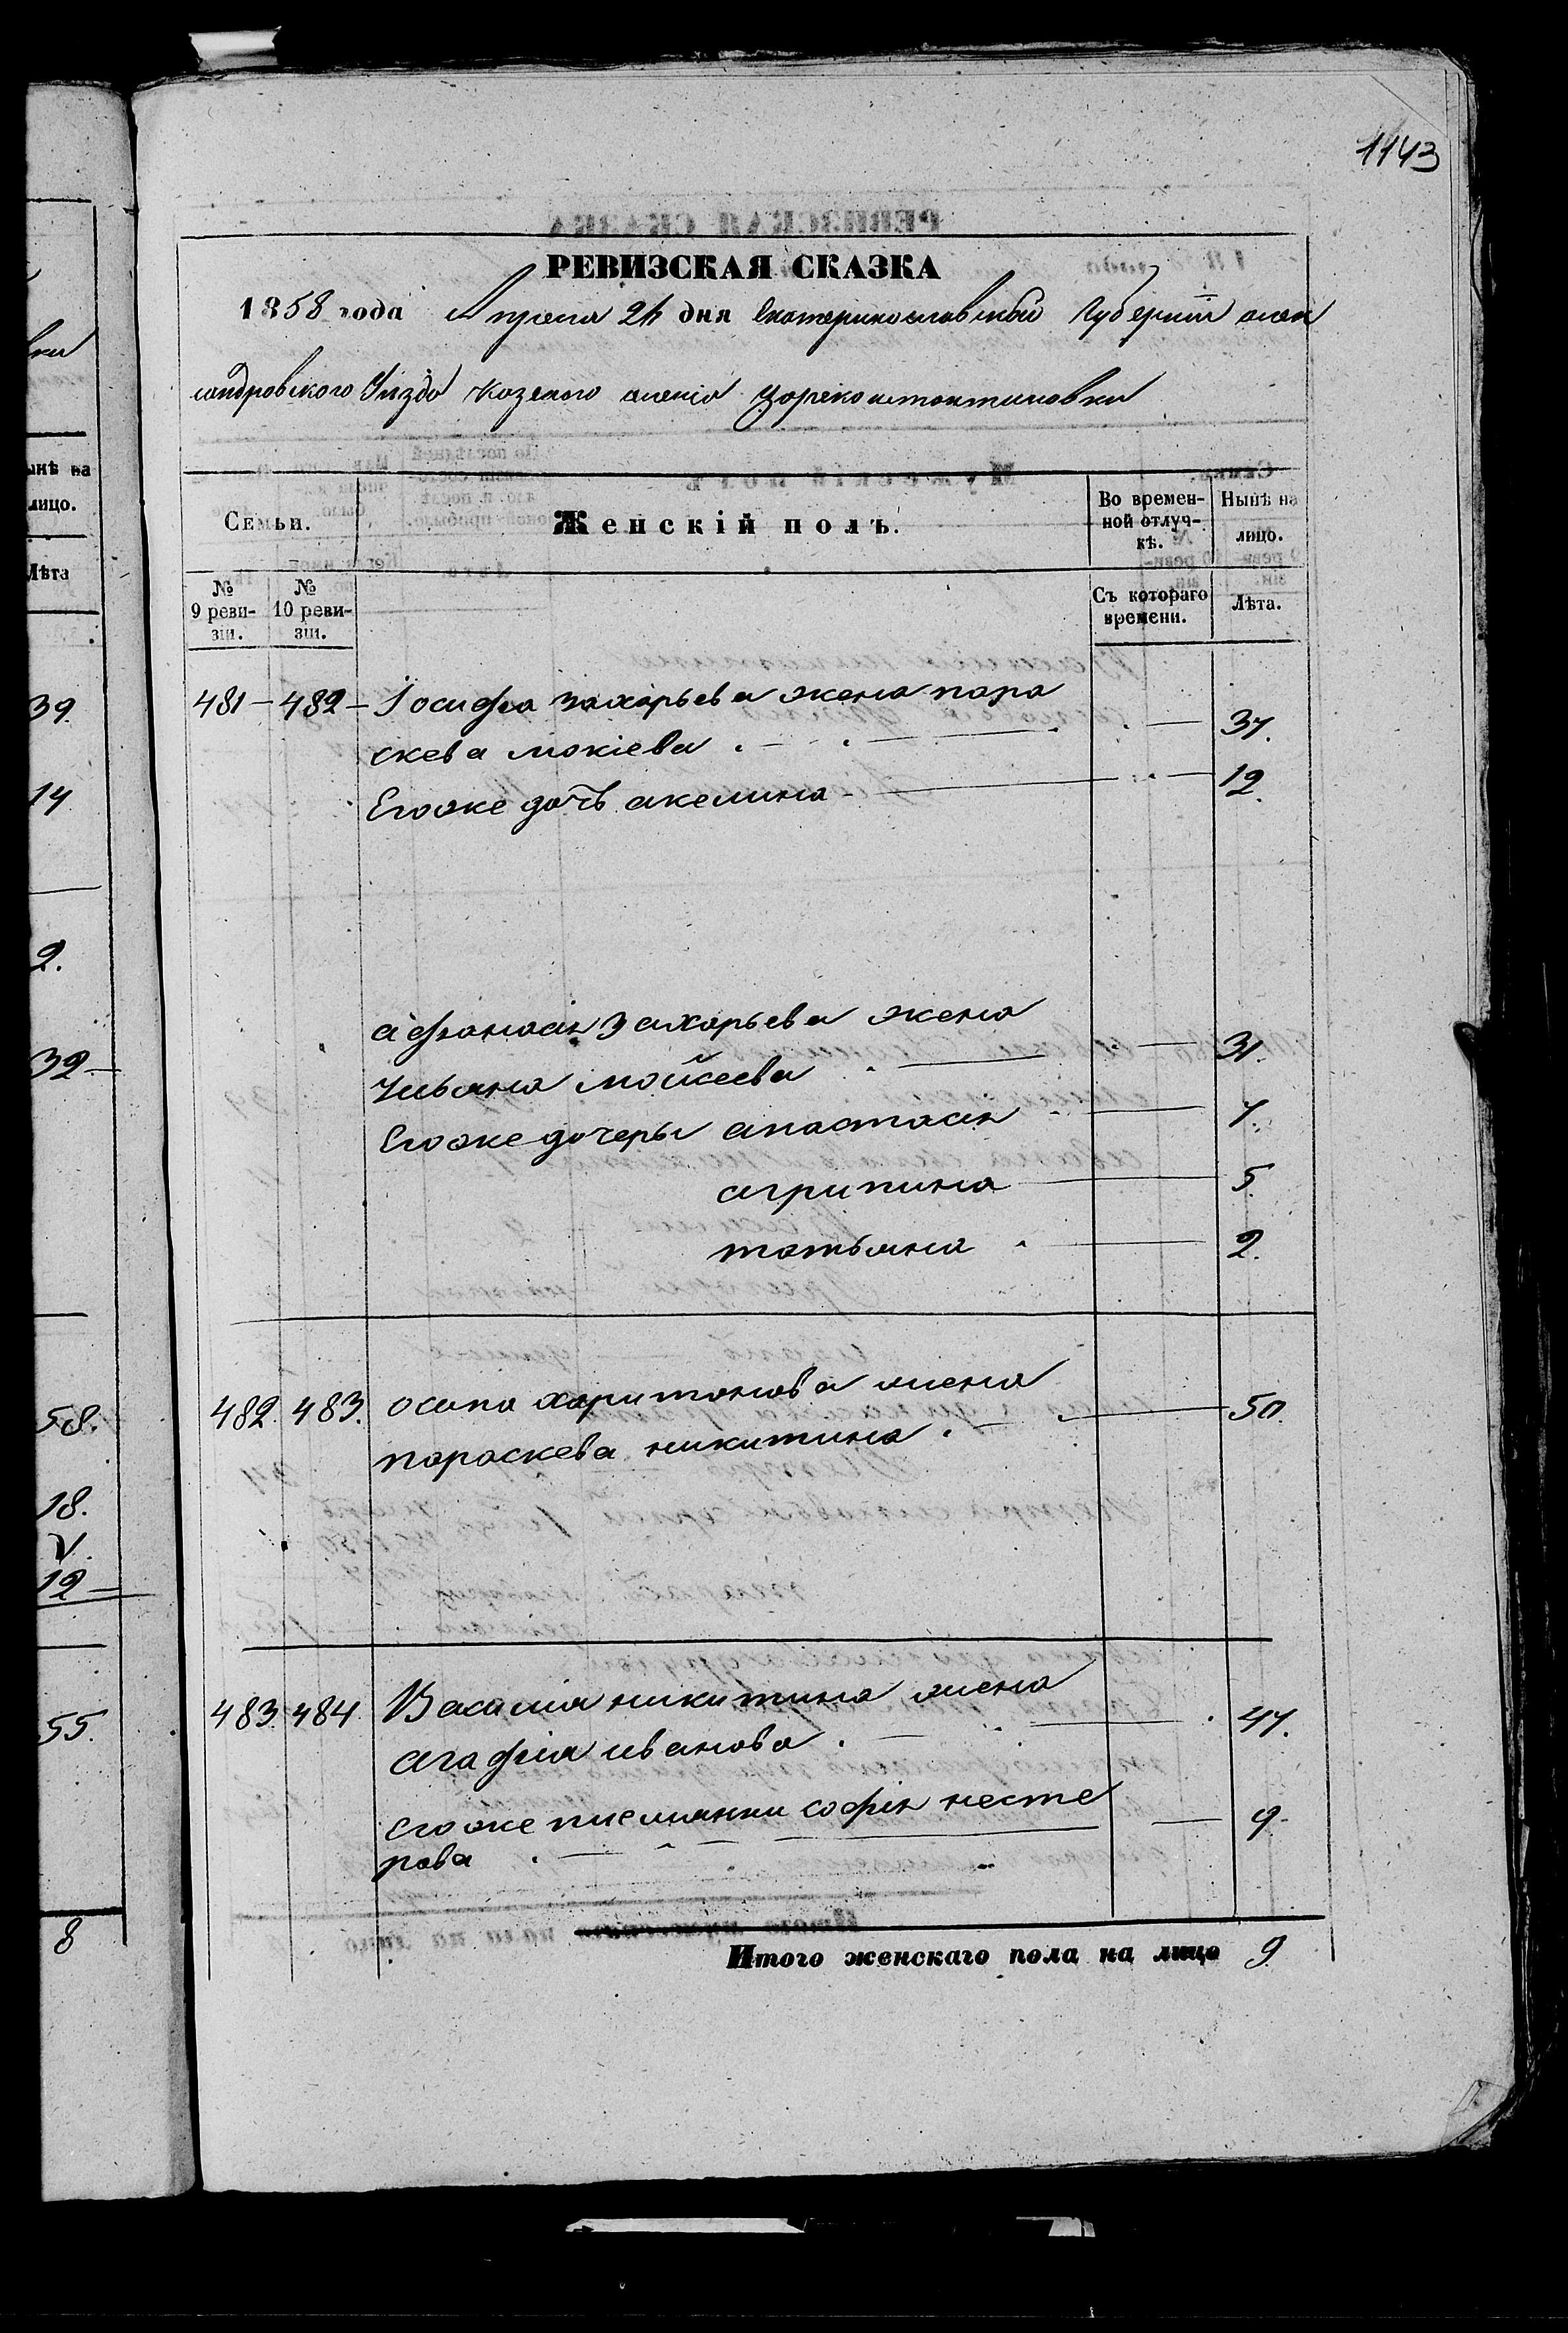 1143
РЕВИЗСКАЯ СКАЗКА
1858 года Апреля 24 дня Екатеринославской Губернии алек
сандровского Уезда Казеного селенія Цареконстонтиновки
Семьи.
Женскій полъ.
Во времен-
ной отлуч-
кѣ.
Нынѣ на
лицо.
№
9 реви-
зіи.
№
10 реви-
зіи.
Съ котораго
времени.
Лѣта.
481 - 482 - Іосифа захарьева жена пара
скева мокіева 37.
Егоже дочь акелина 12.
афанасія Захарьева жена
Ульяна мойсеева 31.
Егоже дочеры анастасія 7.
агрипина 5.
татьяна 2.
482. 483. осипа харитонова жена
пораскева никитина 50.
483. 484. Василия никитина жена
агафия иванова 47.
егоже племянни софія несте
рова 9.
Итого женскаго пола на лицо 9
ынѣ на
лицо.
Лѣта
39.
14
2.
32
58.
18.
12
55.
8